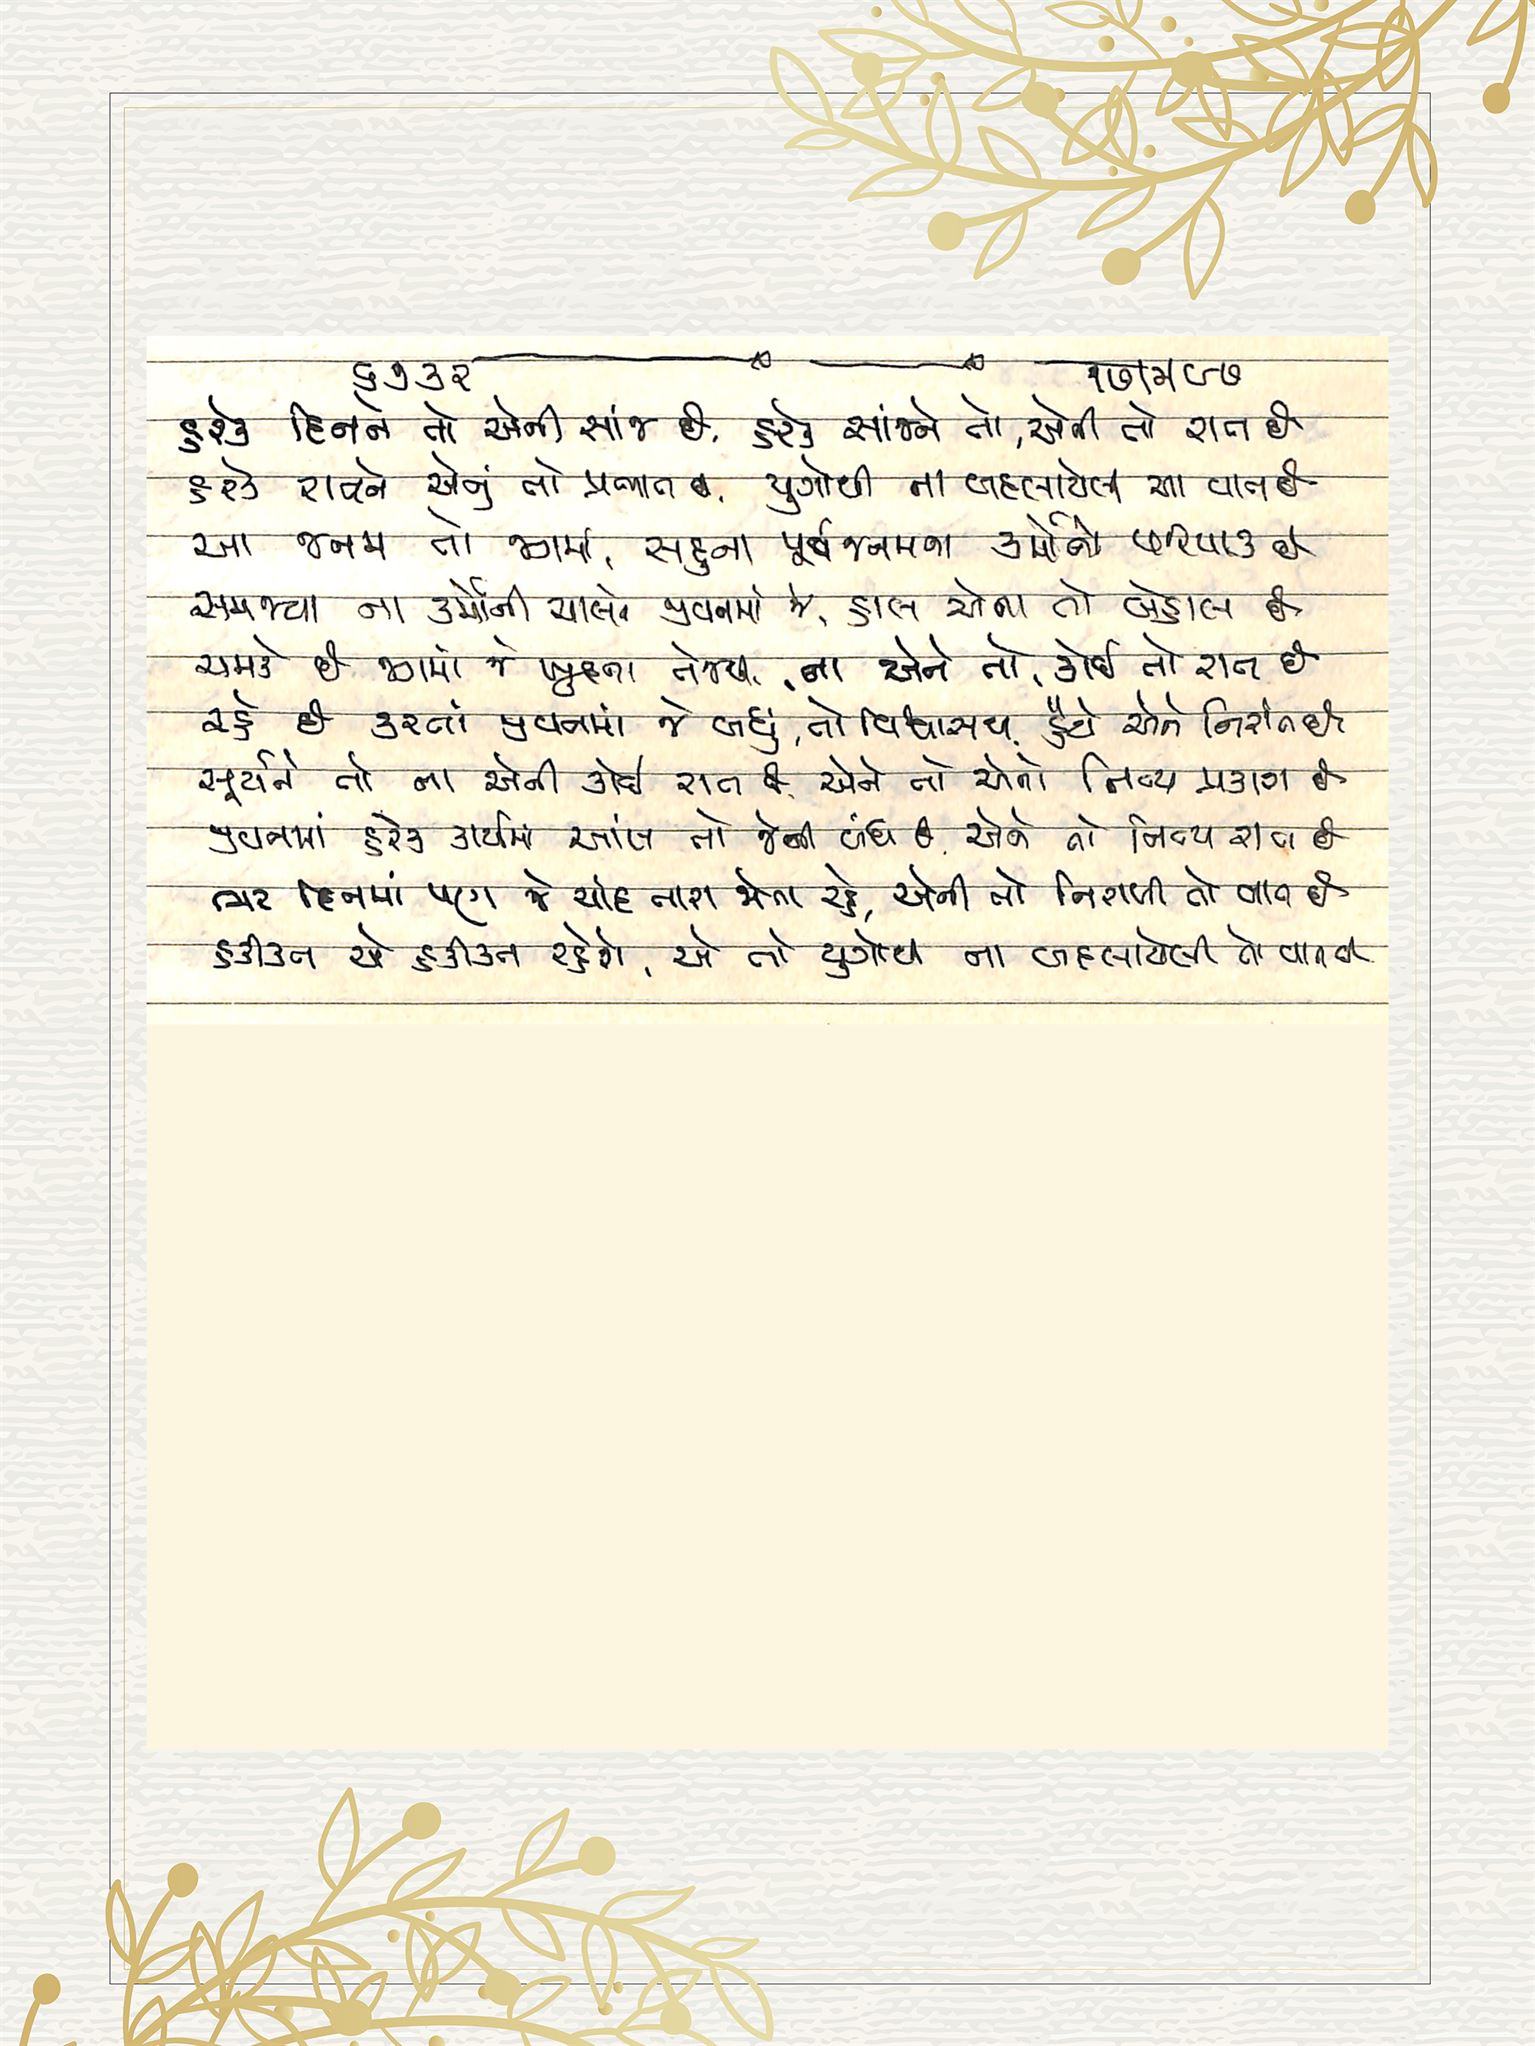 ૬૭૩૨ ૧૭ામ૯૭
હરેક દિનને તો એની સાંજ છે, હરેક સાંજને તો, એની તો રાત છે
હરેક રાતને એનું તો પ્રભાત છે, યુગોથી ના બદલાયેલ આ વાત છે
આ જનમ તો જગમાં, સહુના પૂર્વ જનમના કર્મોનો પરિપાક છે
સમજ્યા ના કર્મોની ચાલને જીવનમાં જે, હાલ એના તો બેહાલ છે
ચમકે છે જગમાં જે ખુદના તેજથી, ના એને તો, કોઈ તો રાત છે
રહે છે કરતાં જીવનમાં જે બધું, તો વિશ્વાસથી, હૈયે એને નિરાંત છે
સૂર્યને તો ના એની કોઈ રાત છે, એને તો એનો નિત્ય પ્રકાશ છે
જીવનમાં હરેક કાર્યમાં આંખ તો જેની બંધ છે, એને તો નિત્ય રાત છે
ભર દિનમાં પણ જે ચાંદ તારા જોતા રહે, એની તો નિરાળી તો વાત છે
હકીકત એ હકીકત રહેશે, એ તો યુગોથી ના બદલાયેલી તો વાત છે